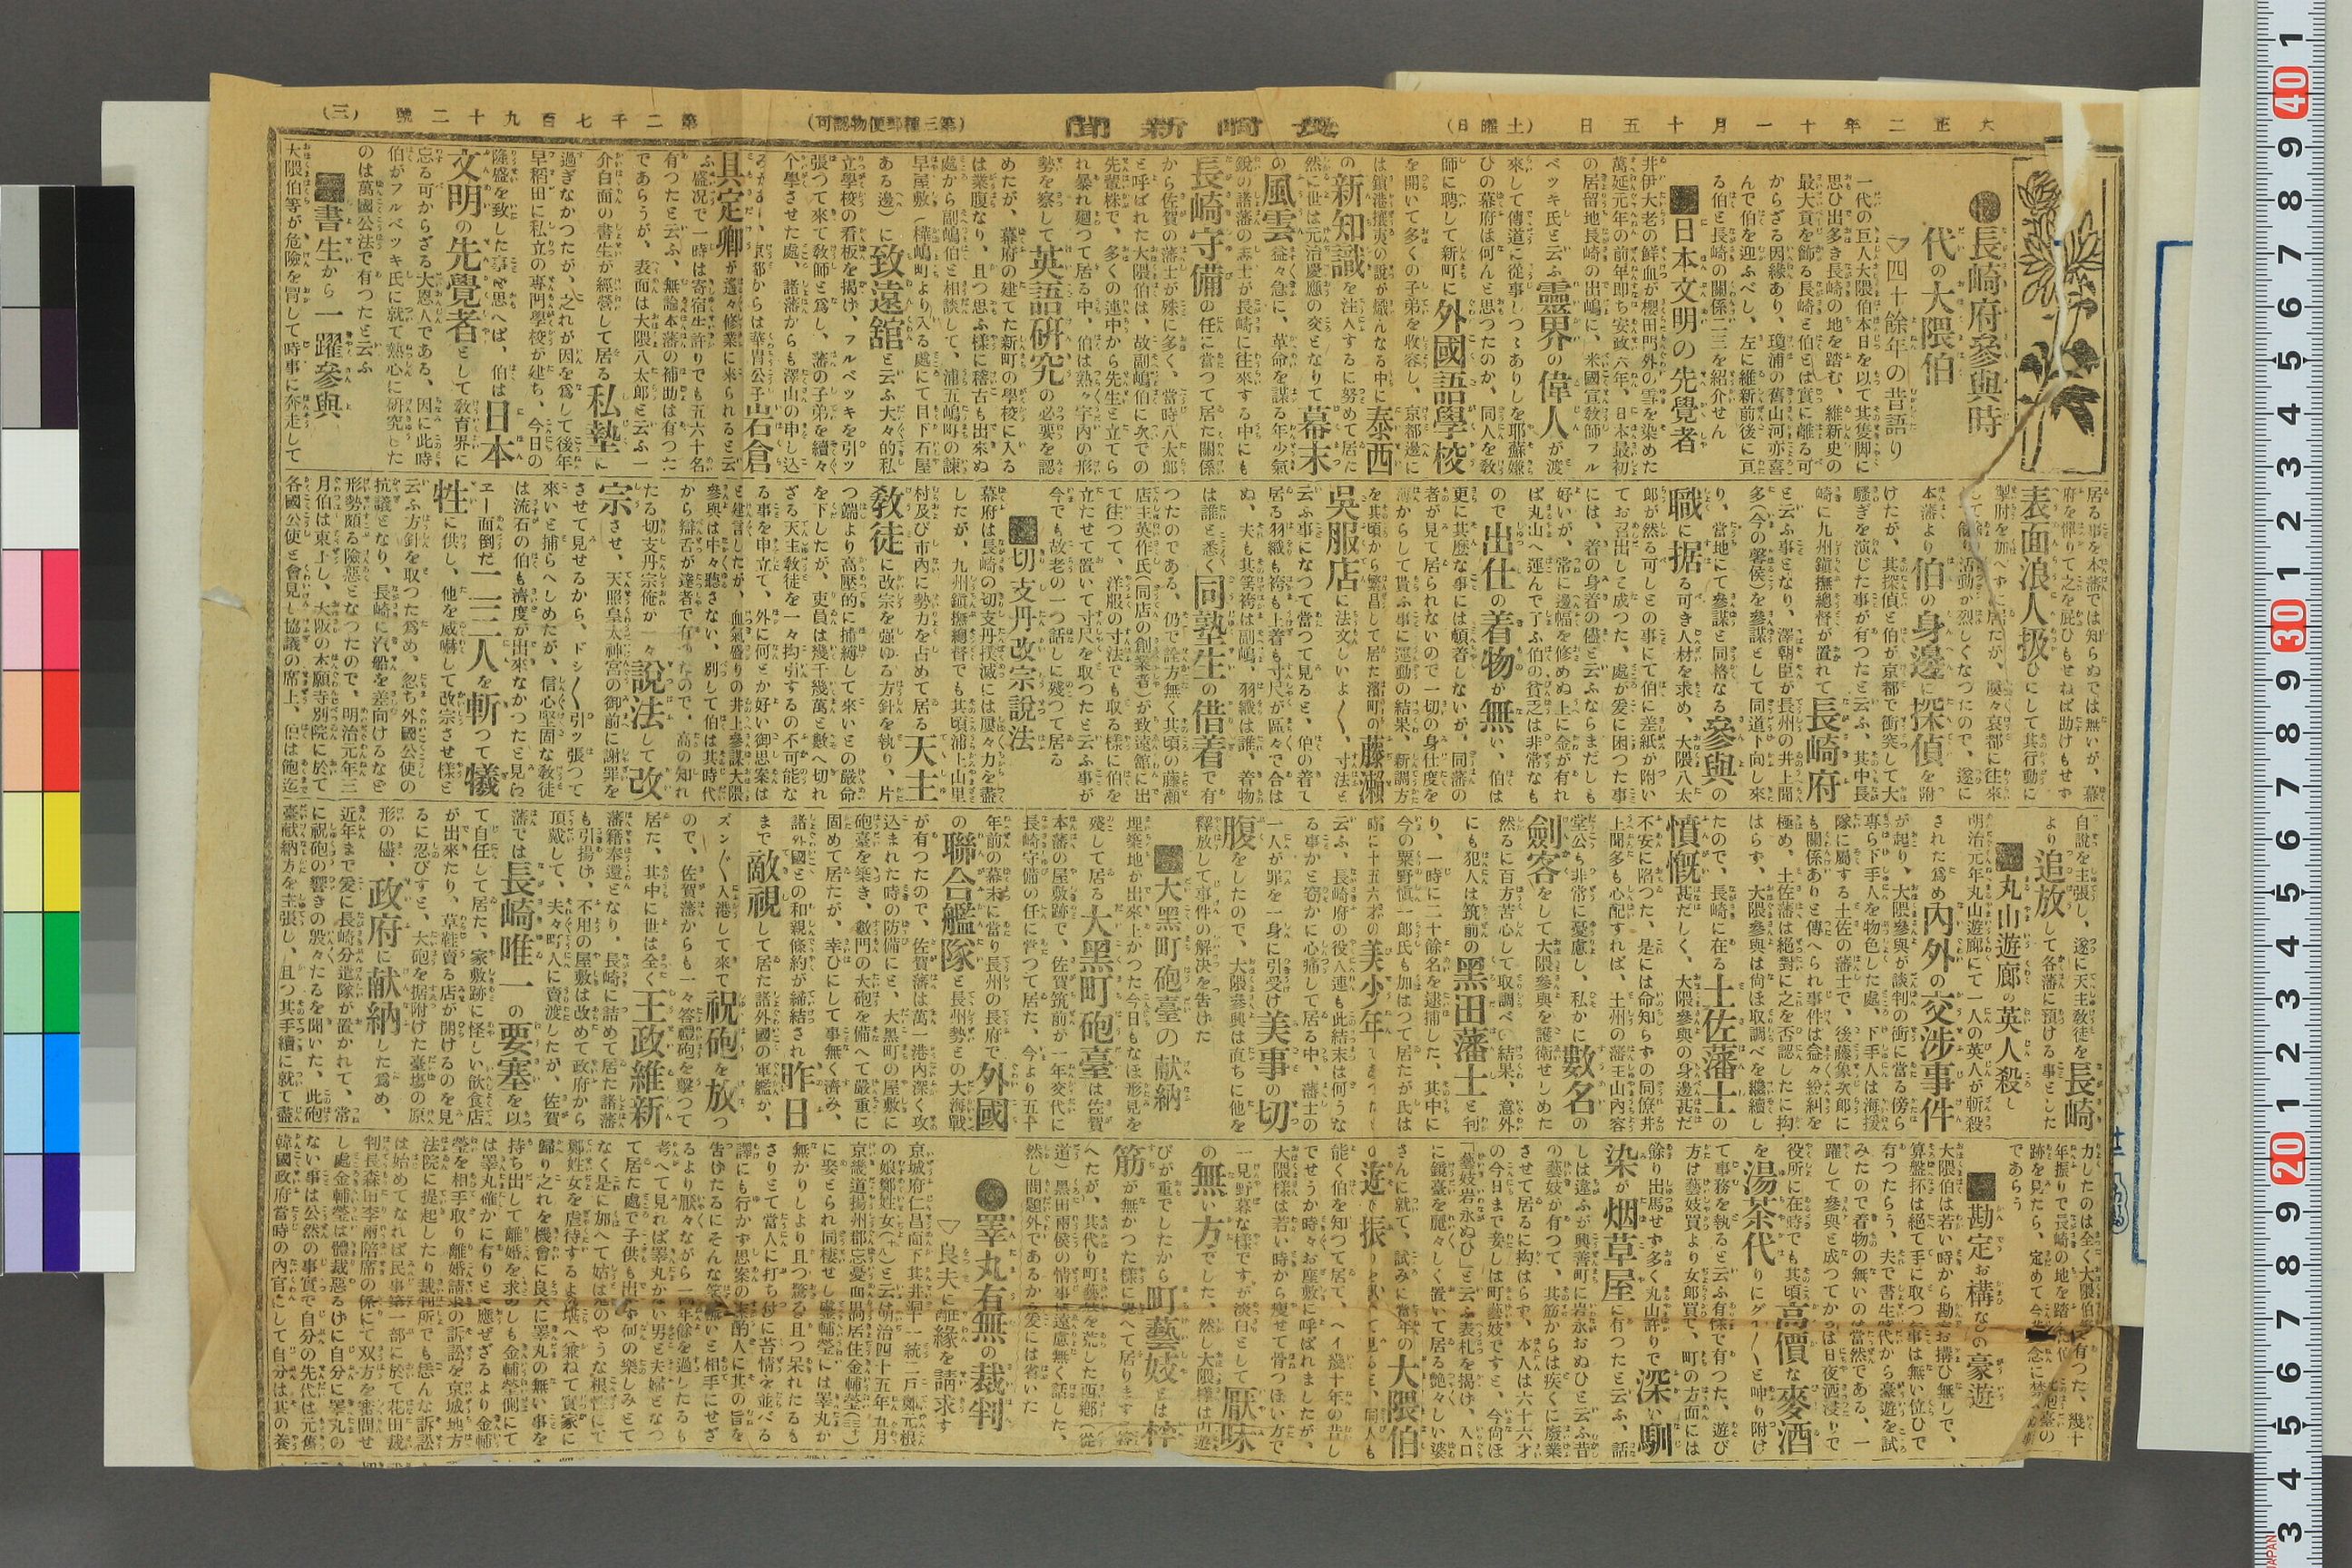 大正二年十一月十五日
(土曜日)
長崎新聞
(第三種郵便物認可)
第二千七百九十二號
(三)
長崎府參與時
代の大隈伯
▽四十餘年の昔語り
一代の巨人大隈伯本日を以て其隻脚に
思ひ出多き長崎の地を踏む、維新史の
最大頁を飾る長崎と伯とは實に離る可
からざる因縁あり、瓊浦の舊山河亦喜
んで伯を迎ふべし、左に維新前後に亘
る伯と長崎の關係二三を紹介せん
日本文明の先覺者
井伊大老の鮮血が櫻田門外の雪を染めた
萬延元年の前年即ち安政六年、日本最初
の居留地長崎の出嶋に、米國宣敎師フル
ベッキ氏と云ふ靈界の偉人が渡
來して傳道に從事しつゝありしを耶蘇嫌
ひの幕府は何んと思つたのか、同人を敎
師に聘して新町に外國語學校
を開いて多くの子弟を收容し、京都邊に
は鎖港攘夷の說が熾んなる中に泰西
の新知識を注入するに努めて居た
然に世は元治慶應の交となりて幕末
の風雲益々急に、革命を謀る年少氣
鋭の諸藩の志士が長崎に往來する中にも
長崎守備の任に當つて居た關係
から佐賀の藩士が殊に多く、當時八太郎
と呼ばれた大隈伯は、故副嶋伯に次での
先輩株で、多くの連中から先生と立てら
れ暴れ廻つて居る中、伯は熟々宇內の形
勢を察して英語研究の必要を認
めたが、幕府の建てた新町の學校に入る
は業腹なり、且つ思ふ樣に稽古も出來ぬ
處から副嶋伯と相談して、浦五嶋町の諫
早屋敷(樺嶋町より入る處にて目下石屋
ある邊)に致遠舘と云ふ大々的私
立學校の看板を揭け、フルベッキを引ッ
張つて來て敎師と爲し、藩の子弟を續々
入學させた處、諸藩からも澤山の申し込
みがあり、京都からは華冑公子岩倉
具定卿が遙々修業に來られると云
ふ盛況で一時は寄宿生許りでも五六十名
有つたと云ふ、無論本藩の補助は有つた
であらうが、表面は大隈八太郎と云ふ一
介白面の書生が經營して居る私塾に
過ぎなかつたが、之れが因を爲して後年
早稻田に私立の專門學校が建ち、今日の
隆盛を致した事を思へば、伯は日本
文明の先覺者として敎育界に
忘る可からざる大恩人である、因に此時
伯がフルベッキ氏に就て熱心に硏究した
のは萬國公法で有つたと云ふ
書生から一躍參與
大隈伯等が危險を冒して時事に奔走して
居る事を本藩では知らぬでは無いが、幕
府を憚りて之を庇ひもせねば助けもせず
表面浪人扱ひにして其行動に
製肘を加へずに居たが、屢々京都に往來
して餘り活動が烈しくなつたので、遂に
本藩より伯の身邊に探偵を附
けたが、其探偵と伯が京都で衝突して大
騷ぎを演じた事が有つたと云ふ、其中長
崎に九州鎭撫總督が置れて長崎府
と云ふ事となり、澤朝臣が長州の井上聞
多(今の馨侯)を參謀として同道下向し來
り、當地にて參謀と同格なる參與の
職に据る可き人材を求め、大隈八太
郎が然る可しとの事にて伯に差紙が附い
てお召出しと成つた、處が爰に困つた事
には、着の身着の儘と云ふならまだしも
好いが、常に邊幅を修めぬ上に金が有れ
ば丸山へ運んで了ふ伯の貧乏は非常なも
ので出仕の着物が無い、伯は
更に其麽な事には頓着しないが、同藩の
者が見て居られないので一切の身仕度を
藩からして貰ふ事に運動の結果、新調方
を其頃から繁昌して居た濱町の藤瀨
吳服店に注文しいよ〱寸法と
云ふ事になつて當つて見ると、伯の着て
居る羽織も袴も上着も寸尺が區々で合は
ぬ、夫も其筈袴は副嶋、羽織は誰、着物
は誰と悉く同塾生の借着で有
つたのである、仍で詮方無く其頃の藤瀨
店主英作氏(同店の創業者)が致遠館に出
て往つて、洋服の寸法でも取る樣に伯を
立たせて置いて寸尺を取つたと云ふ事が
今でも故老の一つ話しに殘つて居る
切支丹改宗說法
幕府は長崎の切支丹撲滅には屢々力を盡
したが、九州鎭撫總督でも其頃浦上山里
村及び市內に勢力を占めて居る天主
敎徒に改宗を强ゆる方針を執り、片
つ端より高壓的に捕縛して來いとの嚴命
を下したが、吏員は幾千幾萬と數へ切れ
ざる天主敎徒を一々拘引するの不可能な
る事を申立て、外に何とか好い御思案は
と建言したが、血氣盛りの井上參謀大隈
參與は中々聽さない、別して伯は其時代
から辯舌が達者で有つたので、高の知れ
たる切支丹宗俺が一々說法して改
宗させ、天照皇太神宮の御前に謝罪を
させて見せるから、ドシ〱引ッ張つて
來いと捕らへしめたが、信心堅固な敎徒
は流石の伯も濟度が出來なかつたと見ら
エー面倒だ二三人を斬つて犧
牲に供し、他を威嚇して改宗させ樣と
云ふ方針を取つた爲め、忽ち外國公使の
抗議となり、長崎に汽船を差向けるなど
形勢頗る險惡となつたので、明治元年三
月伯は東上し、大阪の本願寺別院に於て
各國公使と會見し協議の席上、伯は飽迄
自說を主張し、遂に天主敎徒を長崎
より追放して各藩に預ける事とした
丸山遊廊の英人殺し
明治元年丸山遊廊にて一人の英人が斬殺
された爲め內外の交涉事件
が起り、大隈參與が談判の衝に當る傍ら
專ら下手人を物色した處、下手人は海援
隊に屬する土佐の藩士で、後藤象次郎に
も關係ありと傳へられ事件は益々紛糾を
極め、土佐藩は絕對に之を否認したに拘
はらず、大隈參與は尙ほ取調べを繼續し
たので、長崎に在る土佐藩士の
憤慨甚だしく、大隈參與の身邊甚だ
不安に陷つた、是には命知らずの同僚井
上聞多も心配すれば、土州の藩主山內容
堂公も非常に憂慮し、私かに數名の
劍客をして大隈參與を護衛せしめた
然るに百方苦心して取調べた結果、意外
にも犯人は筑前の黑田藩士と判
り、一時に二十餘名を逮捕した、其中に
今の粟野愼一郎氏も加はつて居たが氏は
時に十五六才の美少年であつたと
云ふ、長崎府の役人連も此結末は何うな
る事かと窃かに心痛して居る中、藩士の
一人が罪を一身に引受け美事の切
腹をしたので、大隈參與は直ちに他を
釋放して事件の解決を告けた
大黑町砲臺の献納
埋築地が出來上かつた今日もなほ形見を
殘して居る大黑町砲臺は佐賀
本藩の屋敷跡で、佐賀筑前が一年交代に
長崎守備の任に當つて居た、今より五十
年前の幕末に當り長州の長府で外國
の聯合艦隊と長州勢との大海戰
が有つたので、佐賀藩は萬一港內深く攻
込まれた時の防備にと、大黑町の屋敷に
砲臺を築き、數門の大砲を備へて嚴重に
固めて居たが、幸ひにして事無く濟み、
諸外國との和親條約が締結され昨日
まで敵視して居た諸外國の軍艦が、
ズン〱入港して來て祝砲を放つ
ので、佐賀藩からも一々答禮砲を擊つて
居た、其中に世は全く王政維新
藩籍奉還となり、長崎に詰めて居た諸藩
も引揚け、不用の屋敷は改めて政府から
頂戴して、夫々町人に賣渡したが、佐賀
藩では長崎唯一の要塞を以
て自任して居た、家敷跡に怪しい飮食店
が出來たり、草鞋賣る店が開けるのを見
るに忍びずと、大砲を据附けた臺塲の原
形の儘、政府に献納した爲め、
近年まで爰に長崎分遣隊が置かれて、常
に祝砲の響きの殷々たるを聞いた、此砲
臺献納方を主張し、且つ其手續に就て盡
力したのは全く大隈伯で有つた、幾十
年振りで長崎の地を踏
跡を見たら、定めて今
であらう
勘定お構なしの豪遊
大隈伯は若い時から勘定お搆ひ無しで、
算盤抔は絕て手に取つた事は無い位ひで
有つたらう、夫で書生時代から豪遊を試
みたので着物の無いのは當然である、一
躍して參與と成つてからは日夜酒浸りで
役所に在る時でも其頃高價な麥酒
を湯茶代りにグイ〱と呷り附け
て事務を執ると云ふ有樣で有つた、遊び
方は藝妓買より女郎買で、町の方面には
餘り出馬せず多く丸山許りで深い馴
染が烟草屋に有つたと云ふ、話
しは違ふが興善町に岩永おぬひと云ふ昔
の藝妓が有つて、其筋からは疾くに廢業
させて居るに拘はらず、本人は六十六才
の今日まで妾しは町藝妓ですと、今尙ほ
「藝妓岩永ぬひ」と云ふ表札を揭け、入口
に鏡臺を麗々しく置いて居る艶々しい婆
さんに就て、試みに當年の大隈伯
の遊振りを訊いて見ると、同人も
能く伯を知つて居て、ヘイ幾十年の昔し
でせうか時々お座敷に呼ばれましたが、
大隈樣は若い時から瘦せて骨つぽい方で
一見野暮な樣ですが淡白として厭味
の無い方でした、然し大隈樣は丸遊
びが重でしたから町藝妓とは粹
筋が無かつた樣に覺へて居ります
へたが、其代り町藝妓を荒した西鄕(從
道)黑田兩侯の情事は遠慮無く話した、
然し問題外であるから爰には省いた
睾丸有無の裁判
▽良夫に離緣を請求す
京城府仁昌面下其井早一統二戶鄭元根
の娘鄭姓女(十八)と云ふ明治四十五年九月
京畿道揚州郡忘憂面陽居住金輔瑩(三十)
に娶とられ同棲せし處輔瑩には睾丸か
無かりしより且つ驚き且つ呆れたるも
さりとて當人に打ち付に苦情を並べる
譯にも行かず思案の末酌人に其の旨を
告けたるにそんな筈は無いと相手にせざ
るより厭々ながら一年餘を過したるも
考へて見れば睾丸かない男と夫婦となつ
て居た處で子供も出來ず何の樂しみとて
なく是に加へて姑は鬼のやうな根性にて
鄭姓女を虐待するより堪へ兼ねて實家に
歸り之れを機會に良人に睾丸の無い事を
持ち出して離婚を求めしも金輔瑩側にて
は睾丸確かに有りと應ぜざるより金輔
瑩を相手取り離婚請求の訴訟を京城地方
法院に提起したり裁判所でも恁んな訴訟
は始めてなれば民事第一部に於て花田裁
判長森田李兩陪席の係にて双方を審問せ
し處金輔瑩は體裁惡るけに自分に睾丸の
ない事は公然の事實で自分の先代は元舊
韓國政府當時の內官にして自分は其の養